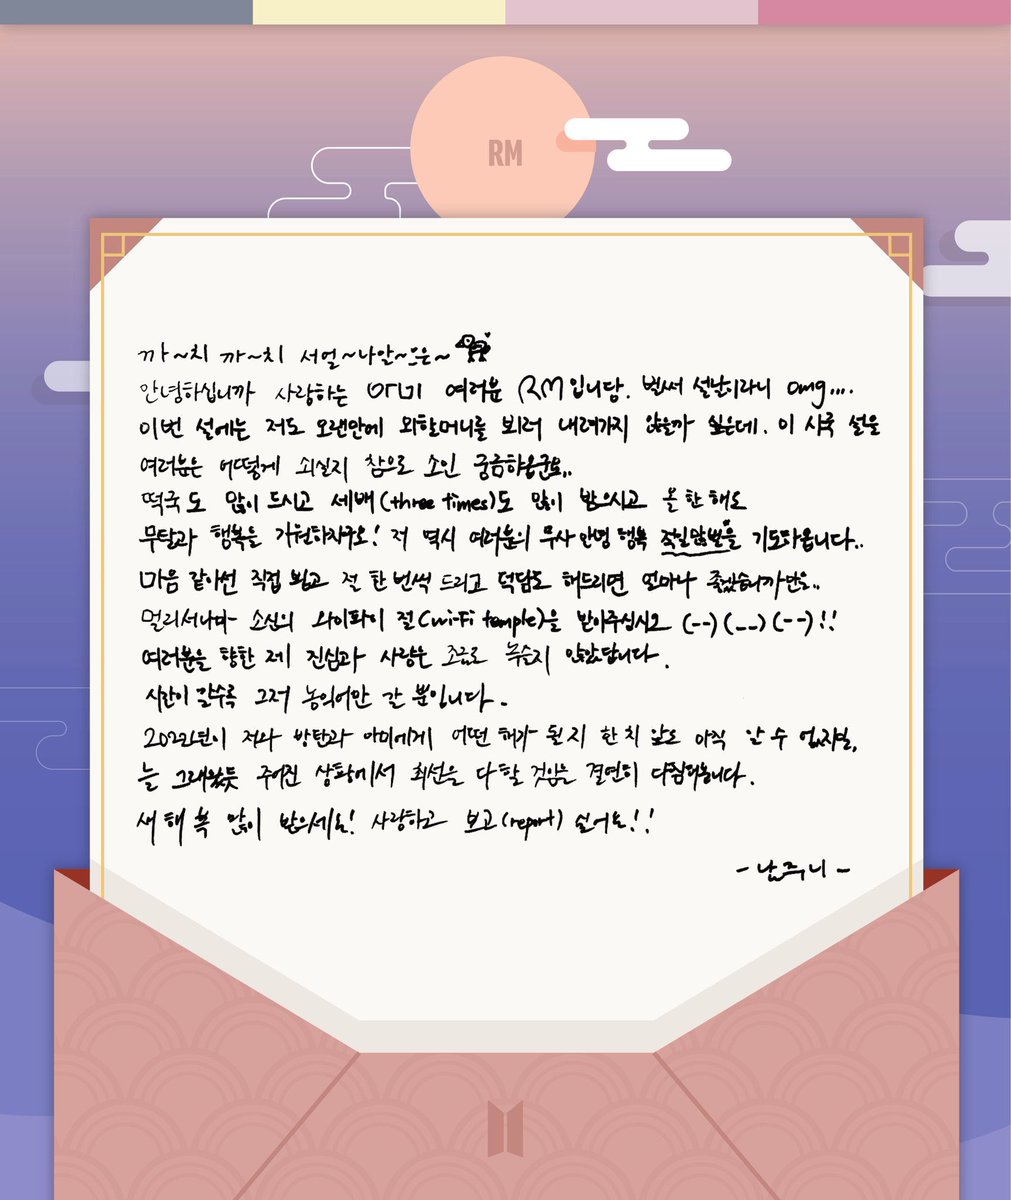 RM
까~치 까~치 서얼~나안~은~
안녕하십니까 사랑하는 아미 여러분 RM입니당. 벌써 설날이라니 omg....
이번 설에는 저도 오랜만에 외할머니를 뵈러 내려가지 않을까 싶은데. 이 시국 설을
여러분은 어떻게 쇠실지 참으로 소인 궁금하옵군요..
떡국도 많이 드시고 세배(three times)도 많이 받으시고 올 한 해도
무탈과 행복을 기원하자구요! 저 역시 여러분의 무사 안녕 행복 을 기도하옵니다..
마음 같아선 직접 뵙고 절 한 번씩 드리고 덕담도 해드리면 얼마나 좋겠습니까만은..
멀리서나마 소신의 와이파이 절(wi-Fi temple)을 받아주십시오 (--)(__)(--)!!
여러분을 향한 제 진심과 사랑은 조금도 녹슬지 않았답니다.
시간이 갈수록 그저 농익어만 갈 뿐입니다.
2022년이 저와 방탄과 아미에게 어떤 해가 될지 한 치 앞도 아직 알 수 없지만,
늘 그래왔듯 주어진 상황에서 최선을 다할 것임을 결연히 다짐해봅니다.
새해 복 많이 받으세요! 사랑하고 보고(report) 싶어요!!
- 남주니 -